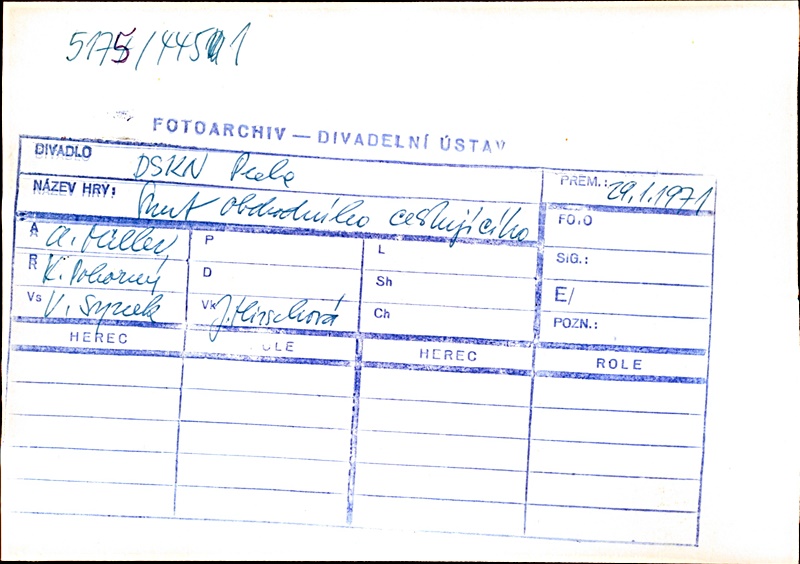 5175/445 1
FOTOARCHIV — DIVADELNÍ ÚSTAV
DIVADLO DSKN Praha
PREM.: 29.1.1971
NÁZEV HRY: Smrt obchodního cestujícího
FOTO
A A. Miller,
P
L
SIG.:
R K. Pokorný
D
Sh
E/
Vs V. Syrek
Vk J. Hirschová
Ch
POZN.:
HEREC
ROLE
HEREC
ROLE